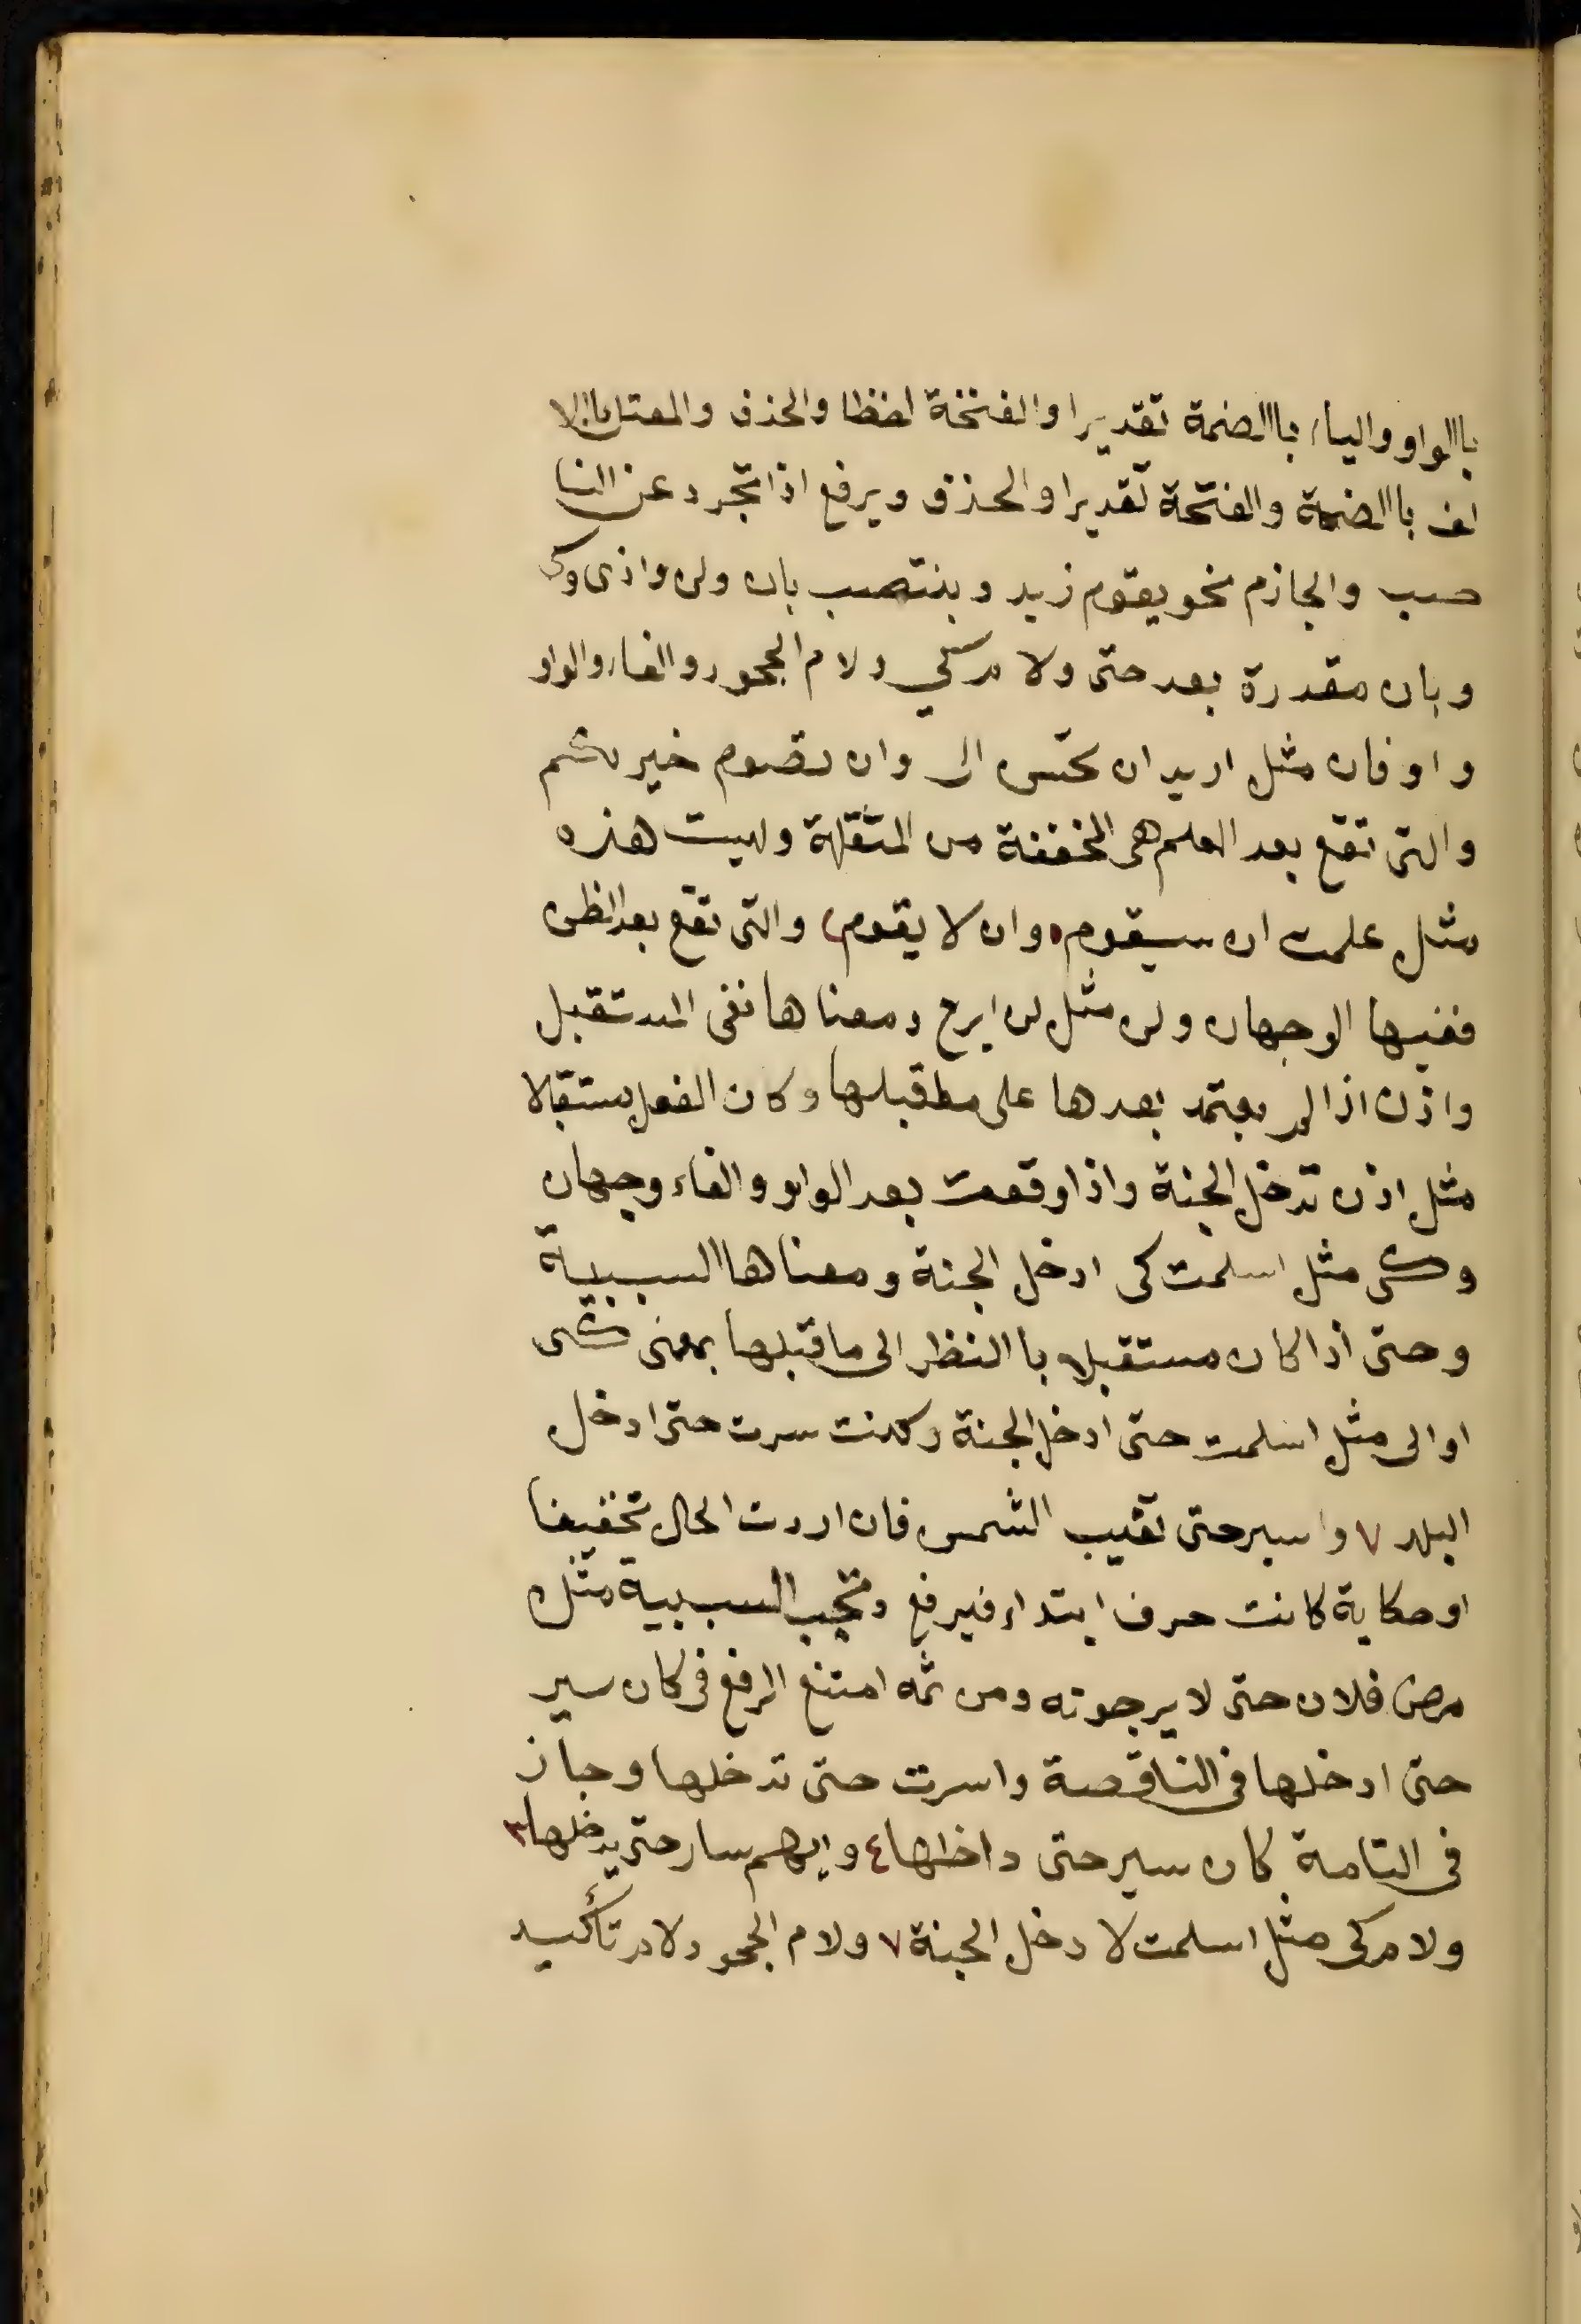 باالواو والياء باالضمة تقديرا والفتحة لفظا والحذف والمعتل باالا
لف باالضمة والفتحة تقديرا والحذف ويرفع اذا تجرد عن النا
صب والجازم نحو يقوم زيد وينتصب بان ولن واذن وكى
وبان مقدرة بعد حتى ولام كي ولام الجحود والفاء والواو
واو فان مثل اريد ان تحسن الى وان تصوم خير لكم
والتى تقع بعد العلم هى المخففة من المثقلة وليست هذه
مثل علمت ان سيقوم وان لا يقوم والتى تقع بعد الظن
ففيها الوجهان ولن مثل لن ابرح ومعناها نفى المستقبل
واذن اذا لم يعتمد بعدها على ما قبلها وكان الفعل مستقبلا
مثل اذن تدخل الجنة واذا وقعت بعد الواو والفاء وجهان
وكى مثل اسلمت كى ادخل الجنة ومعناها السببية
وحتى اذا كان مستقبلا باالنظر الى ما قبلها بمعنى كى
او الى مثل اسلمت حتى ادخل الجنة وكنت سرت حتى ادخل
البلد ٧ واسير حتى تغيب الشمس فان اردت الحال تحقيقا
او حكاية كانت حرف ابتداء فيرفع وتجب السببية مثل
مرض فلان حتى لا يرجونه ومن ثمه امتنع الرفع فى كان سير
حتى ادخلها فى الناقصة واسرت حتى تدخلها وجاز
فى التامة كان سير حتى داخلها ٤ وايهم سار حتى يدخلها ٣
ولام كى مثل اسلمت لا دخل الجنة ٧ ولام الجحود لام تأكيد